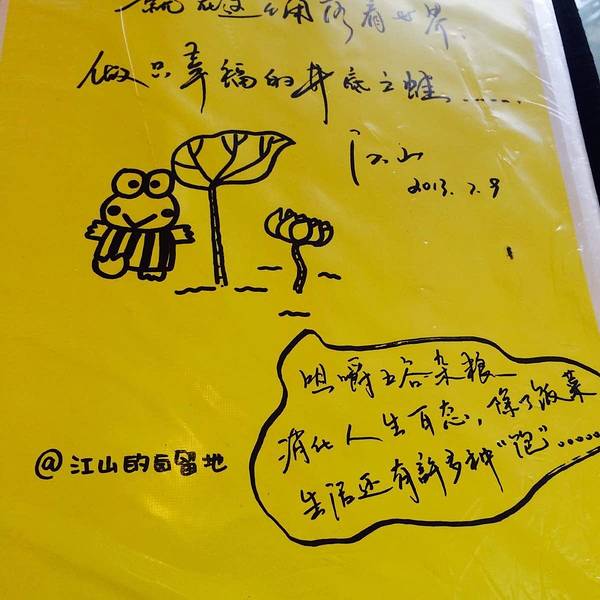 就在这里闲路看世界.
做只幸福的井底之蛙......
江山
2013.7.9
咀嚼五谷杂粮
消化人生百态,除了饭菜
生活还有許多种"饱"......
@江山的自留地